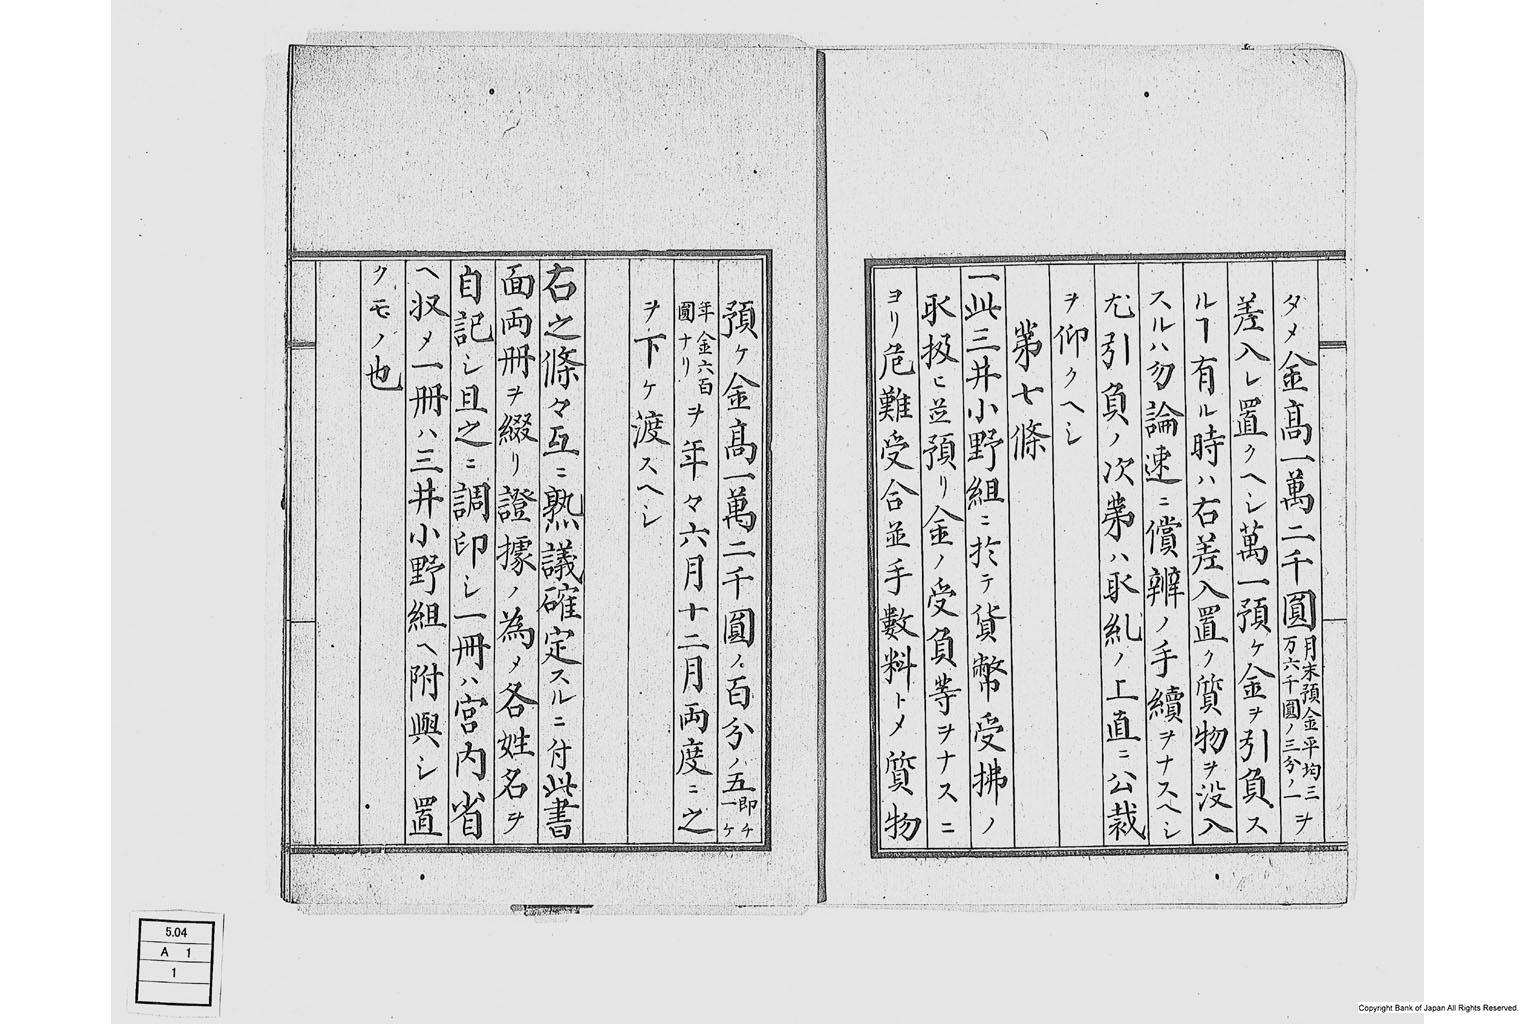 タメ金高一萬二千圓月末預金平均三万六千圓ノ三分ノ一ヲ
差入レ置クヘシ萬一預ケ金ヲ引負ス
ルヿ有ル時ハ右差入置ク質物ヲ没入
スルハ勿論速ニ償辨ノ手續ヲナスヘシ
尤引負ノ次第ハ取糺ノ上直ニ公裁
ヲ仰クヘシ
第七條
一此三井小野組ニ於テ貨幣受拂ノ
取扱ヒ並預リ金ノ受負等ヲナスニ
ヨリ危難受合並手數料トメ質物
預ケ金高一萬二千圓ノ百分ノ五即チ一ケ
年金六百圓ナリヲ年々六月十二月両度ニ之
ヲ下ケ渡スヘシ
右之條々互ニ熟議確定スルニ付此書
面両冊ヲ綴リ證據ノ為メ各姓名ヲ
自記シ且之ニ調印シ一冊ハ宮内省
ヘ収メ一冊ハ三井小野組ヘ附與シ置
クモノ也
5.04
A 1
1
Copyright Bank of Japan All Rights Reserved.